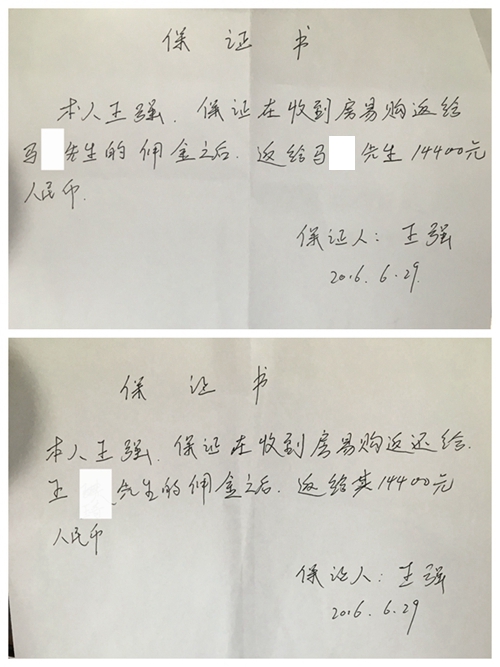 保 证 书
本人王强，保证在收到房易购返给
马 先生的佣金之后，返给马 先生14400元
人民币.
保证人：王强
2016.6.29.
保 证 书
本人王强，保证在收到房易购返还给
王 先生的佣金之后，返给其14400元
人民币
保证人：王强
2016.6.29